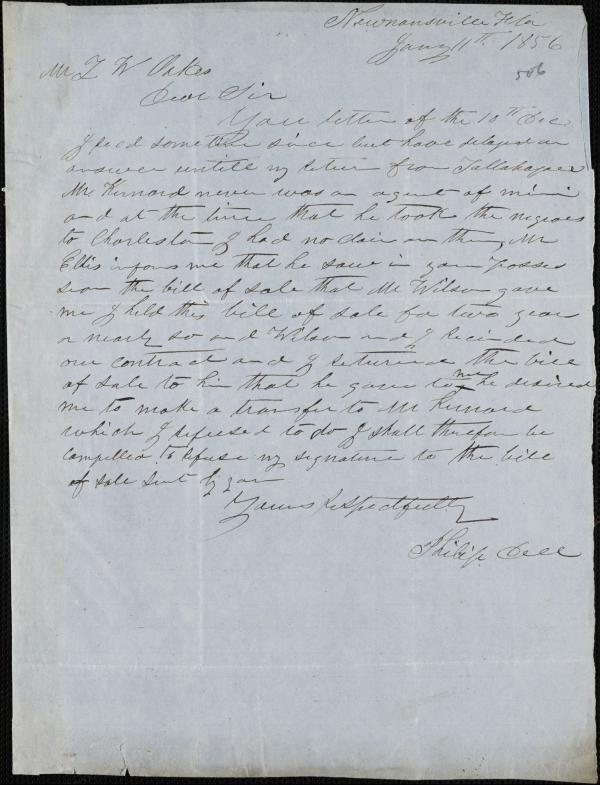 Newnansville Fla
Jany 11th 1856
506
Mr Z W Oakes
Dear Sir
Your letter of the 10th Dec
I recd sometime since but have delayed an
answer untill my return from Tallahassee
Mr Kinnard never was an agent of mine
and at the time that he took the negroes
to Charleston I had no claim on them, Mr
Ellis informs me that he saw in your posses
sion the bill of sale that Mr Wilson gave
me I held this bill of sale for two years
or nearly so and Wilson and I recinded
our contract and I returned the bill
of sale to him that he gave to me he desired
me to make a transfer to Mr Kinnard
which I refused to do I shall therefore be
compelled to refuse my signature to the bill
of sale sent by you
Yours respectfully
Philip Dell